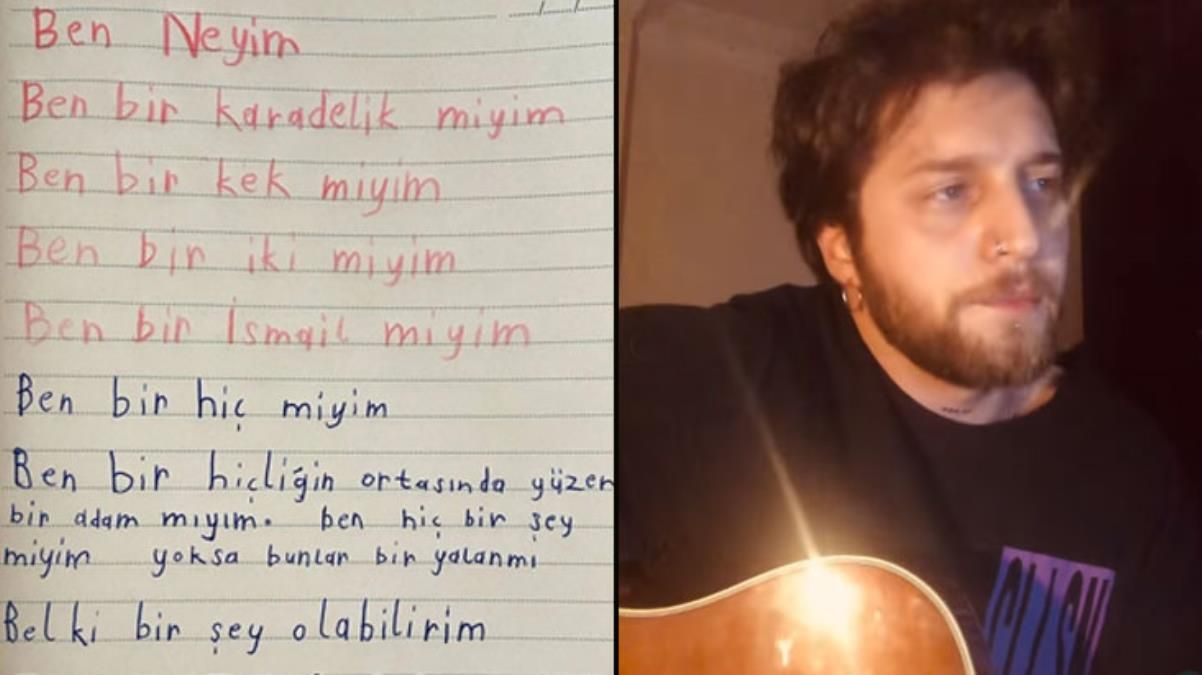 Ben Neyim
Ben bir karadelik miyim
Ben bir kek miyim
Ben bir iki miyim
Ben bir İsmail miyim
Ben bir hiç miyim
Ben bir hiçliğin ortasında yüzen
bir adam mıyım. ben hiç bir şey
miyim yoksa bunlar bir yalanmı
Belki bir şey olabilirim